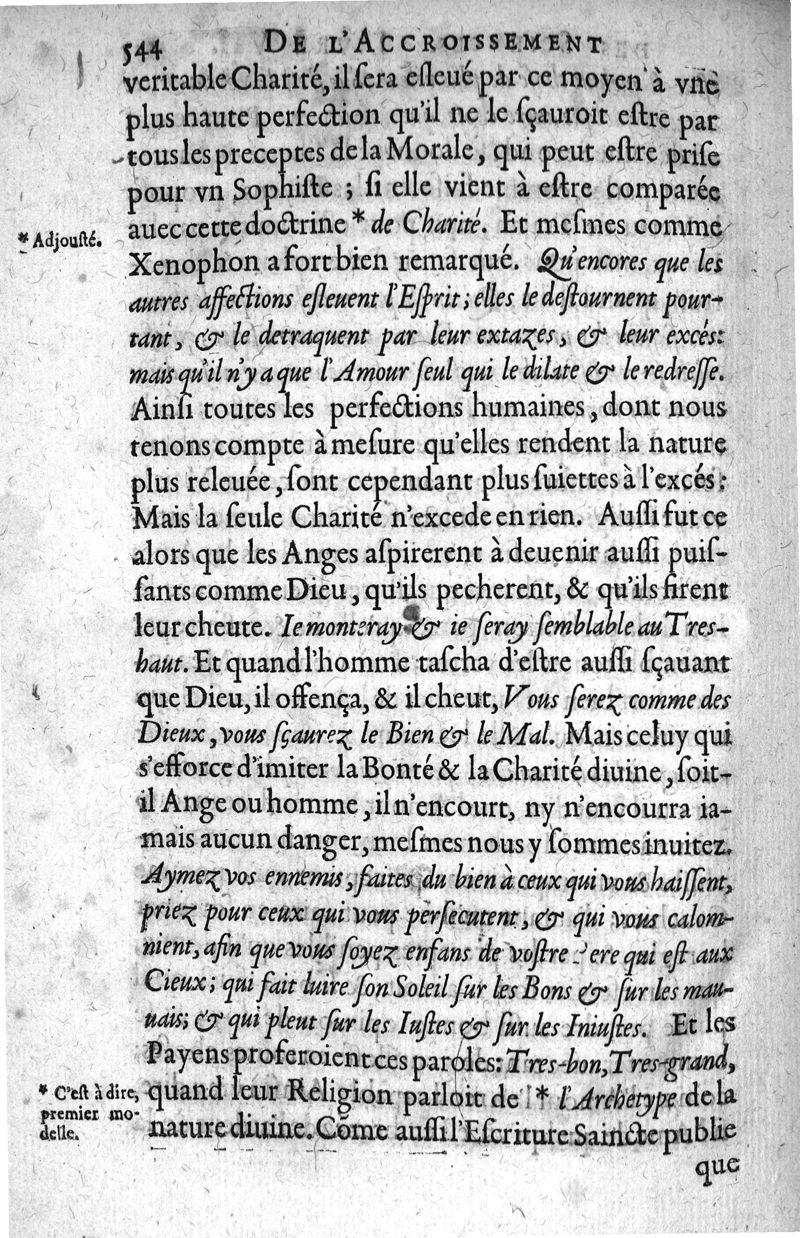 544 DE L'ACCROISSEMENT
veritable Charité, il ſera eſleué par ce moyen à vne
plus haute perfection qu'il ne le ſçauroit eſtre par
tous les preceptes de la Morale, qui peut eſtre priſe
pour vn Sophiſte ; ſi elle vient à eſtre comparée
* Adjouſté.
auec cette doctrine * de Charité. Et meſmes comme
Xenophon a fort bien remarqué. Qu'encores que les
autres affections eſleuent l'Eſprit ; elles le deſtournent pour-
tant, & le detraquent par leur extazes, & leur excés:
mais qu'il n'y a que l'Amour ſeul qui le dilate & le redreſſe.
Ainſi toutes les perfections humaines, dont nous
tenons compte à meſure qu'elles rendent la nature
plus releuée, ſont cependant plus ſuiettes à l'excés :
Mais la ſeule Charité n'excede en rien. Auſſi fut ce
alors que les Anges aſpirerent à deuenir auſſi puiſ-
ſants comme Dieu, qu'ils pecherent, & qu'ils firent
leur cheute. Ie monteray & ie ſeray ſemblable au Tres-
haut. Et quand l'homme taſcha d'eſtre auſſi ſçauant
que Dieu, il offença, & il cheut, Vous ſerez comme des
Dieux, vous ſçaurez le Bien & le Mal. Mais celuy qui
s'efforce d'imiter la Bonté & la Charité diuine, ſoit-
il Ange ou homme, il n'encourt, ny n'encourra ia-
mais aucun danger, meſmes nous y ſommes inuitez.
Aymez vos ennemis, faites du bien à ceux qui vous haiſſent,
priez pour ceux qui vous perſecutent, & qui vous calom-
nient, afin que vous ſoyez enfans de voſtre Pere qui eſt aux
Cieux ; qui fait luire ſon Soleil ſur les Bons & ſur les mau-
uais ; & qui pleut ſur les Iuſtes & ſur les Iniuſtes. Et les
Payens proferoient ces paroles : Tres-bon, Tres-grand,
* C'eſt à dire,
premier mo-
delle.
quand leur Religion parloit de * l'Archetype de la
nature diuine. Cõme auſſi l'Eſcriture Saincte publie
que